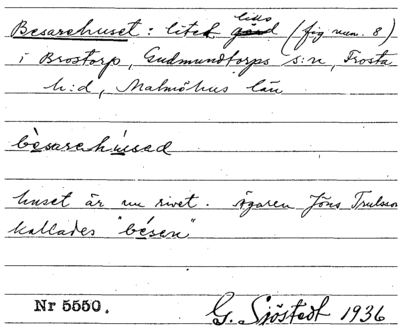 Besarehuset: litet hus (fig num. 8)
i Brostorp, Gudmundtorps s:n, Frosta
h:d, Malmöhus län
bèsarehúsad
huset är nu rivet. Ägaren Jöns Trulsson
kallades "bésen"
Nr 5550. G. Sjöstedt 1936